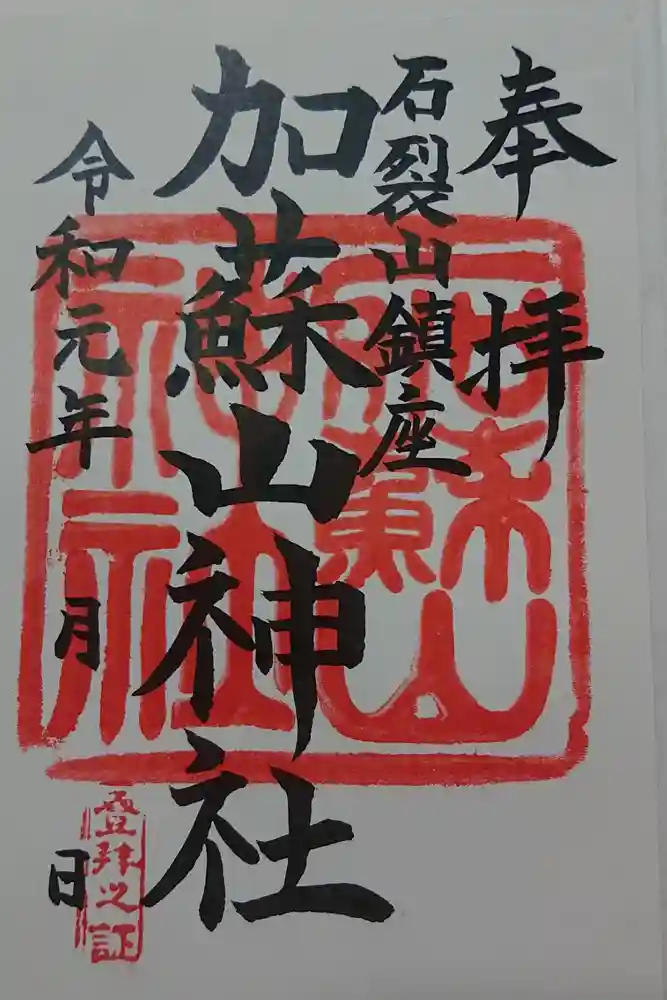 奉拝
石裂山鎮座
加蘇山神社
令和元年 月 日
加蘇山
神社
登拝之証